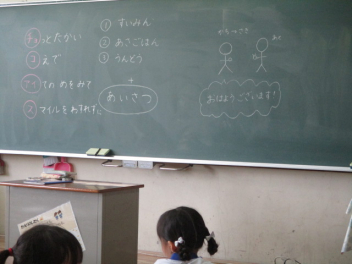 ちょっとたかい
こえで
あいての めをみて
スマイルをわすれずに
① すいみん
② あさごはん
③ うんどう
+
あいさつ
おはようございます!